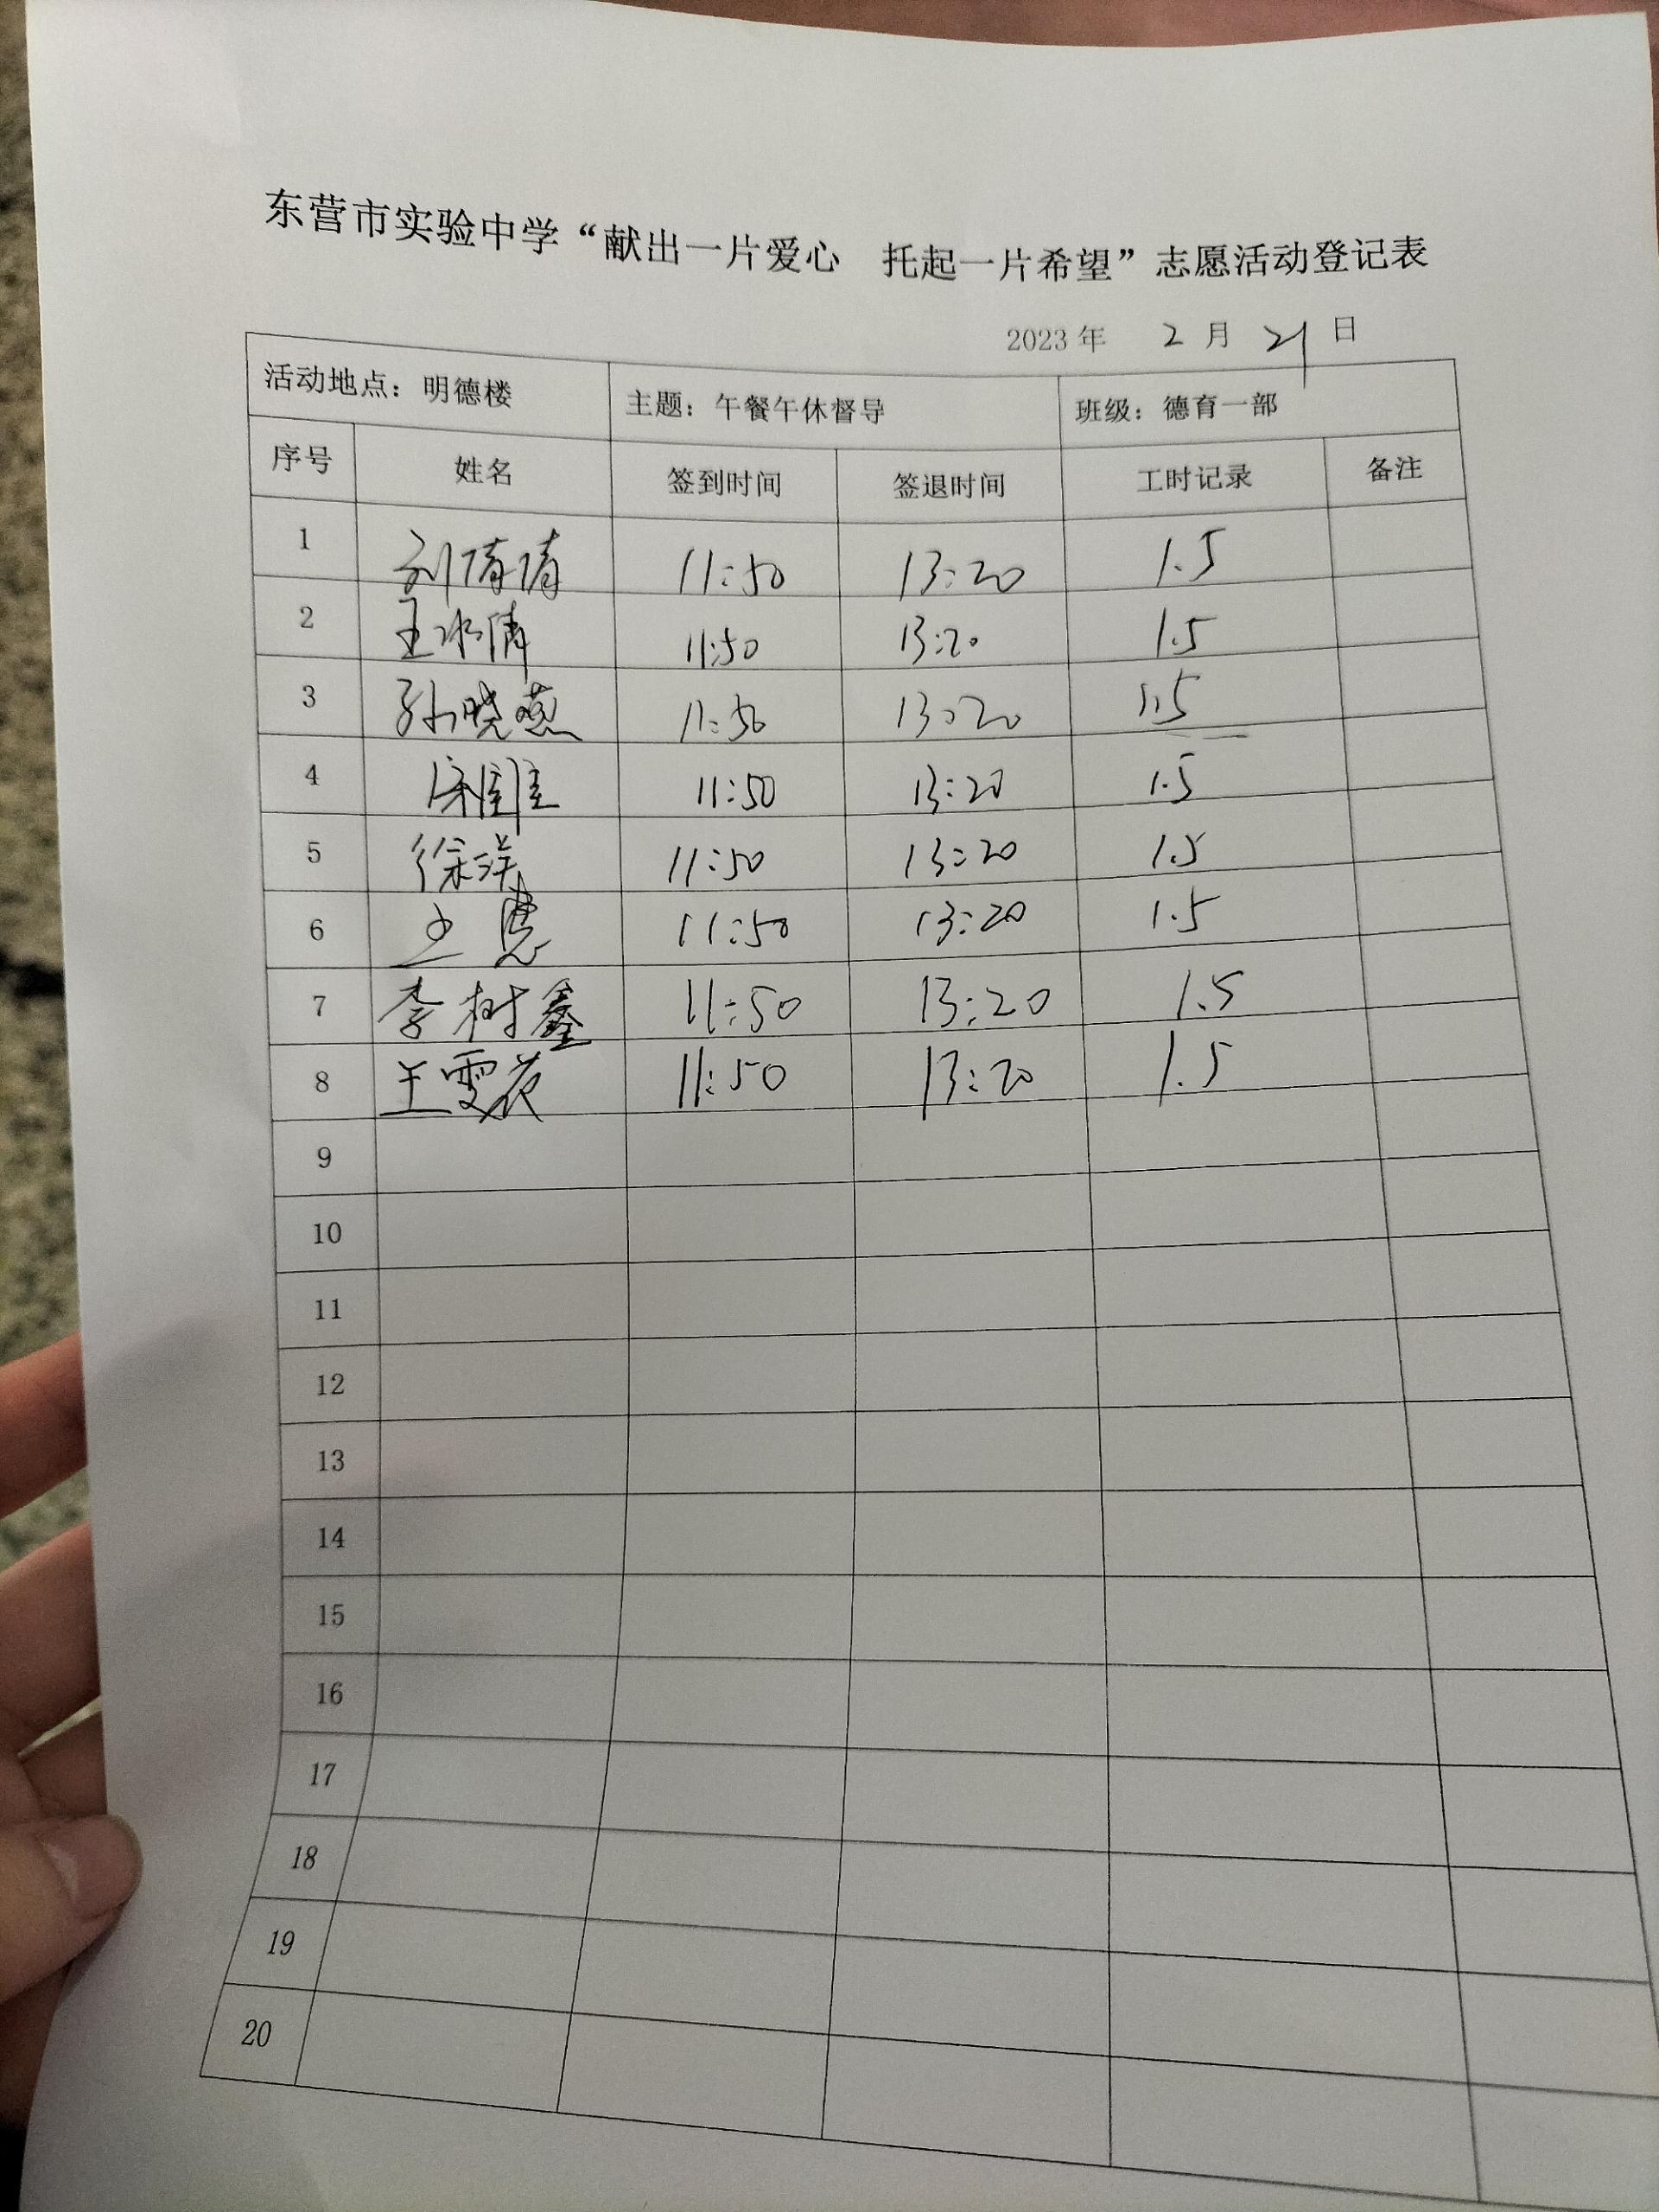 东营市实验中学“献出一片爱心 托起一片希望”志愿活动登记表
2023 年 2 月 21 日
活动地点：明德楼 主题：午餐午休督导 班级：德育一部
序号 姓名 签到时间 签退时间 工时记录 备注
1 刘倩倩 11:50 13:20 1.5
2 王冰倩 11:50 13:20 1.5
3 孙晓燕 11:50 13:20 1.5
4 11:50 13:20 1.5
5 徐洋 11:50 13:20 1.5
6 王慧 11:50 13:20 1.5
7 李树鑫 11:50 13:20 1.5
8 王雪花 11:50 13:20 1.5
9
10
11
12
13
14
15
16
17
18
19
20